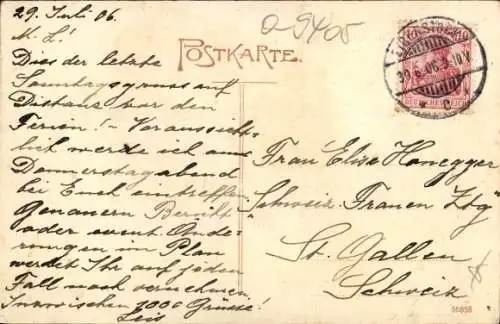 29. Juli 06.
a-9405
POSTKARTE.
M. L!
Dies der letzte
Sonntagsgruss auf
Distanz vor den
Ferien! - Voraussicht-
lich werde ich am
Donnerstagabend
bei Euch eintreffen.
Genauern Bericht
oder event. Ände-
rungen im Plan
werdet Ihr auf jeden
Fall noch vernehmen.
Inzwischen 1000 Grüsse!
Leis
DEUTSCHES REICH
Frau Elise Honegger
"Schweiz. Frauen Ztg"
St. Gallen
Schweiz